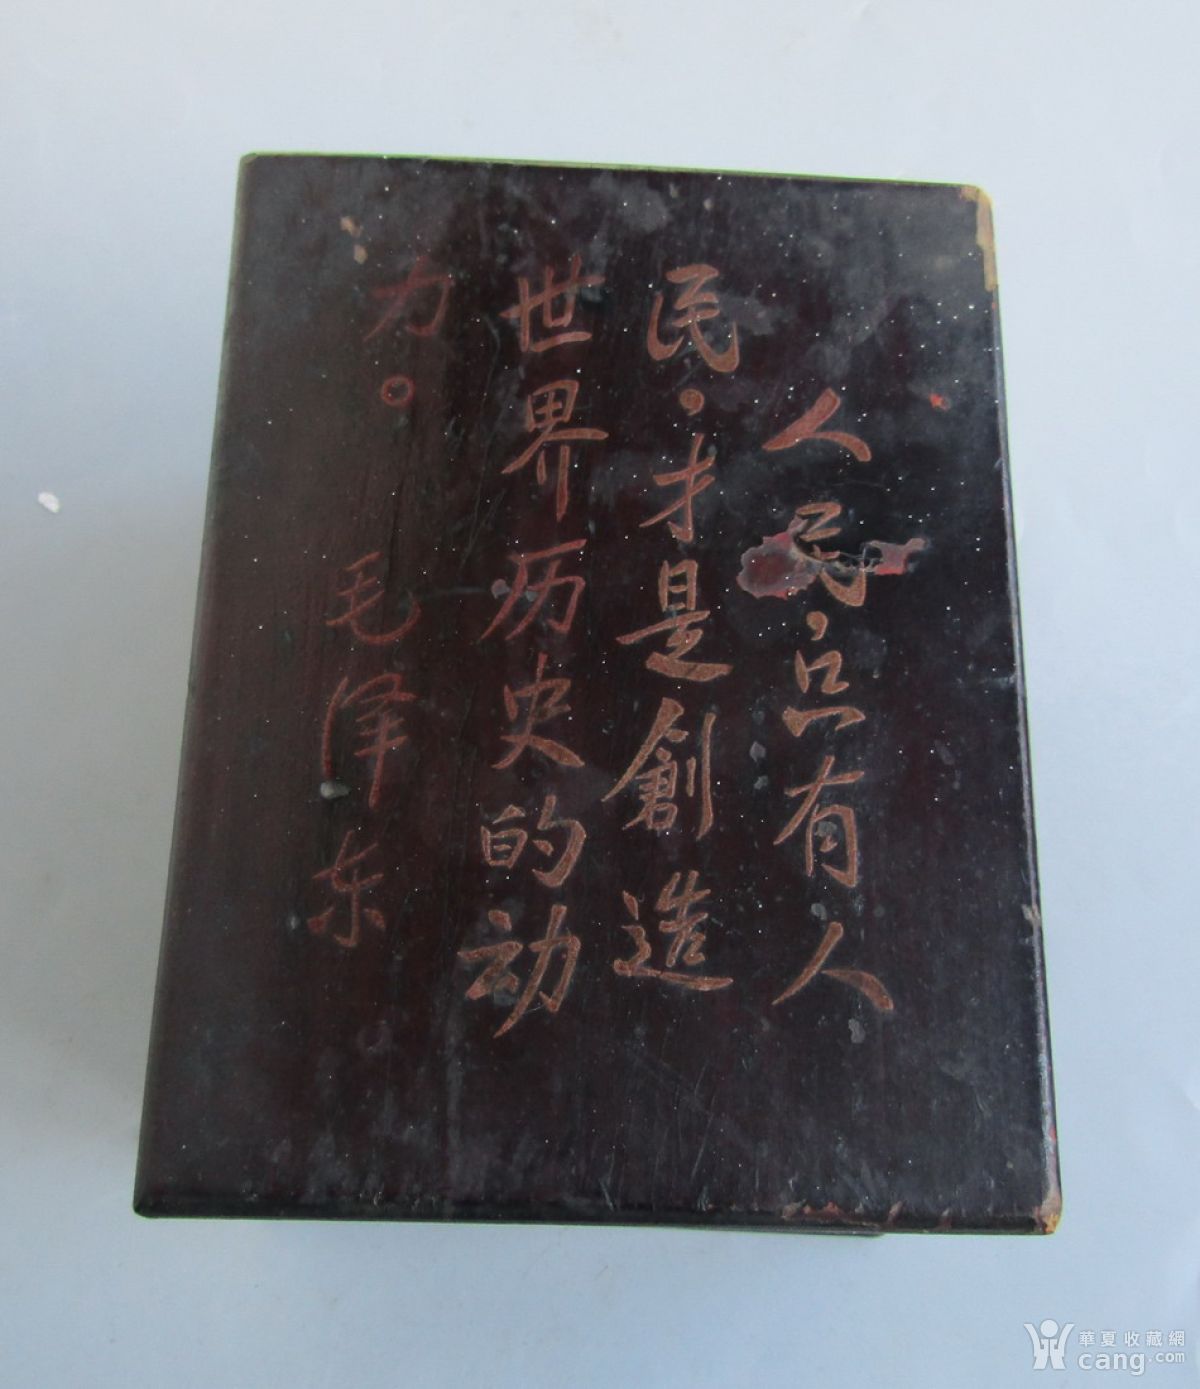 人民，只有人
民，才是創造
世界历史的动
力。
毛泽东
華夏收藏網
cang.com